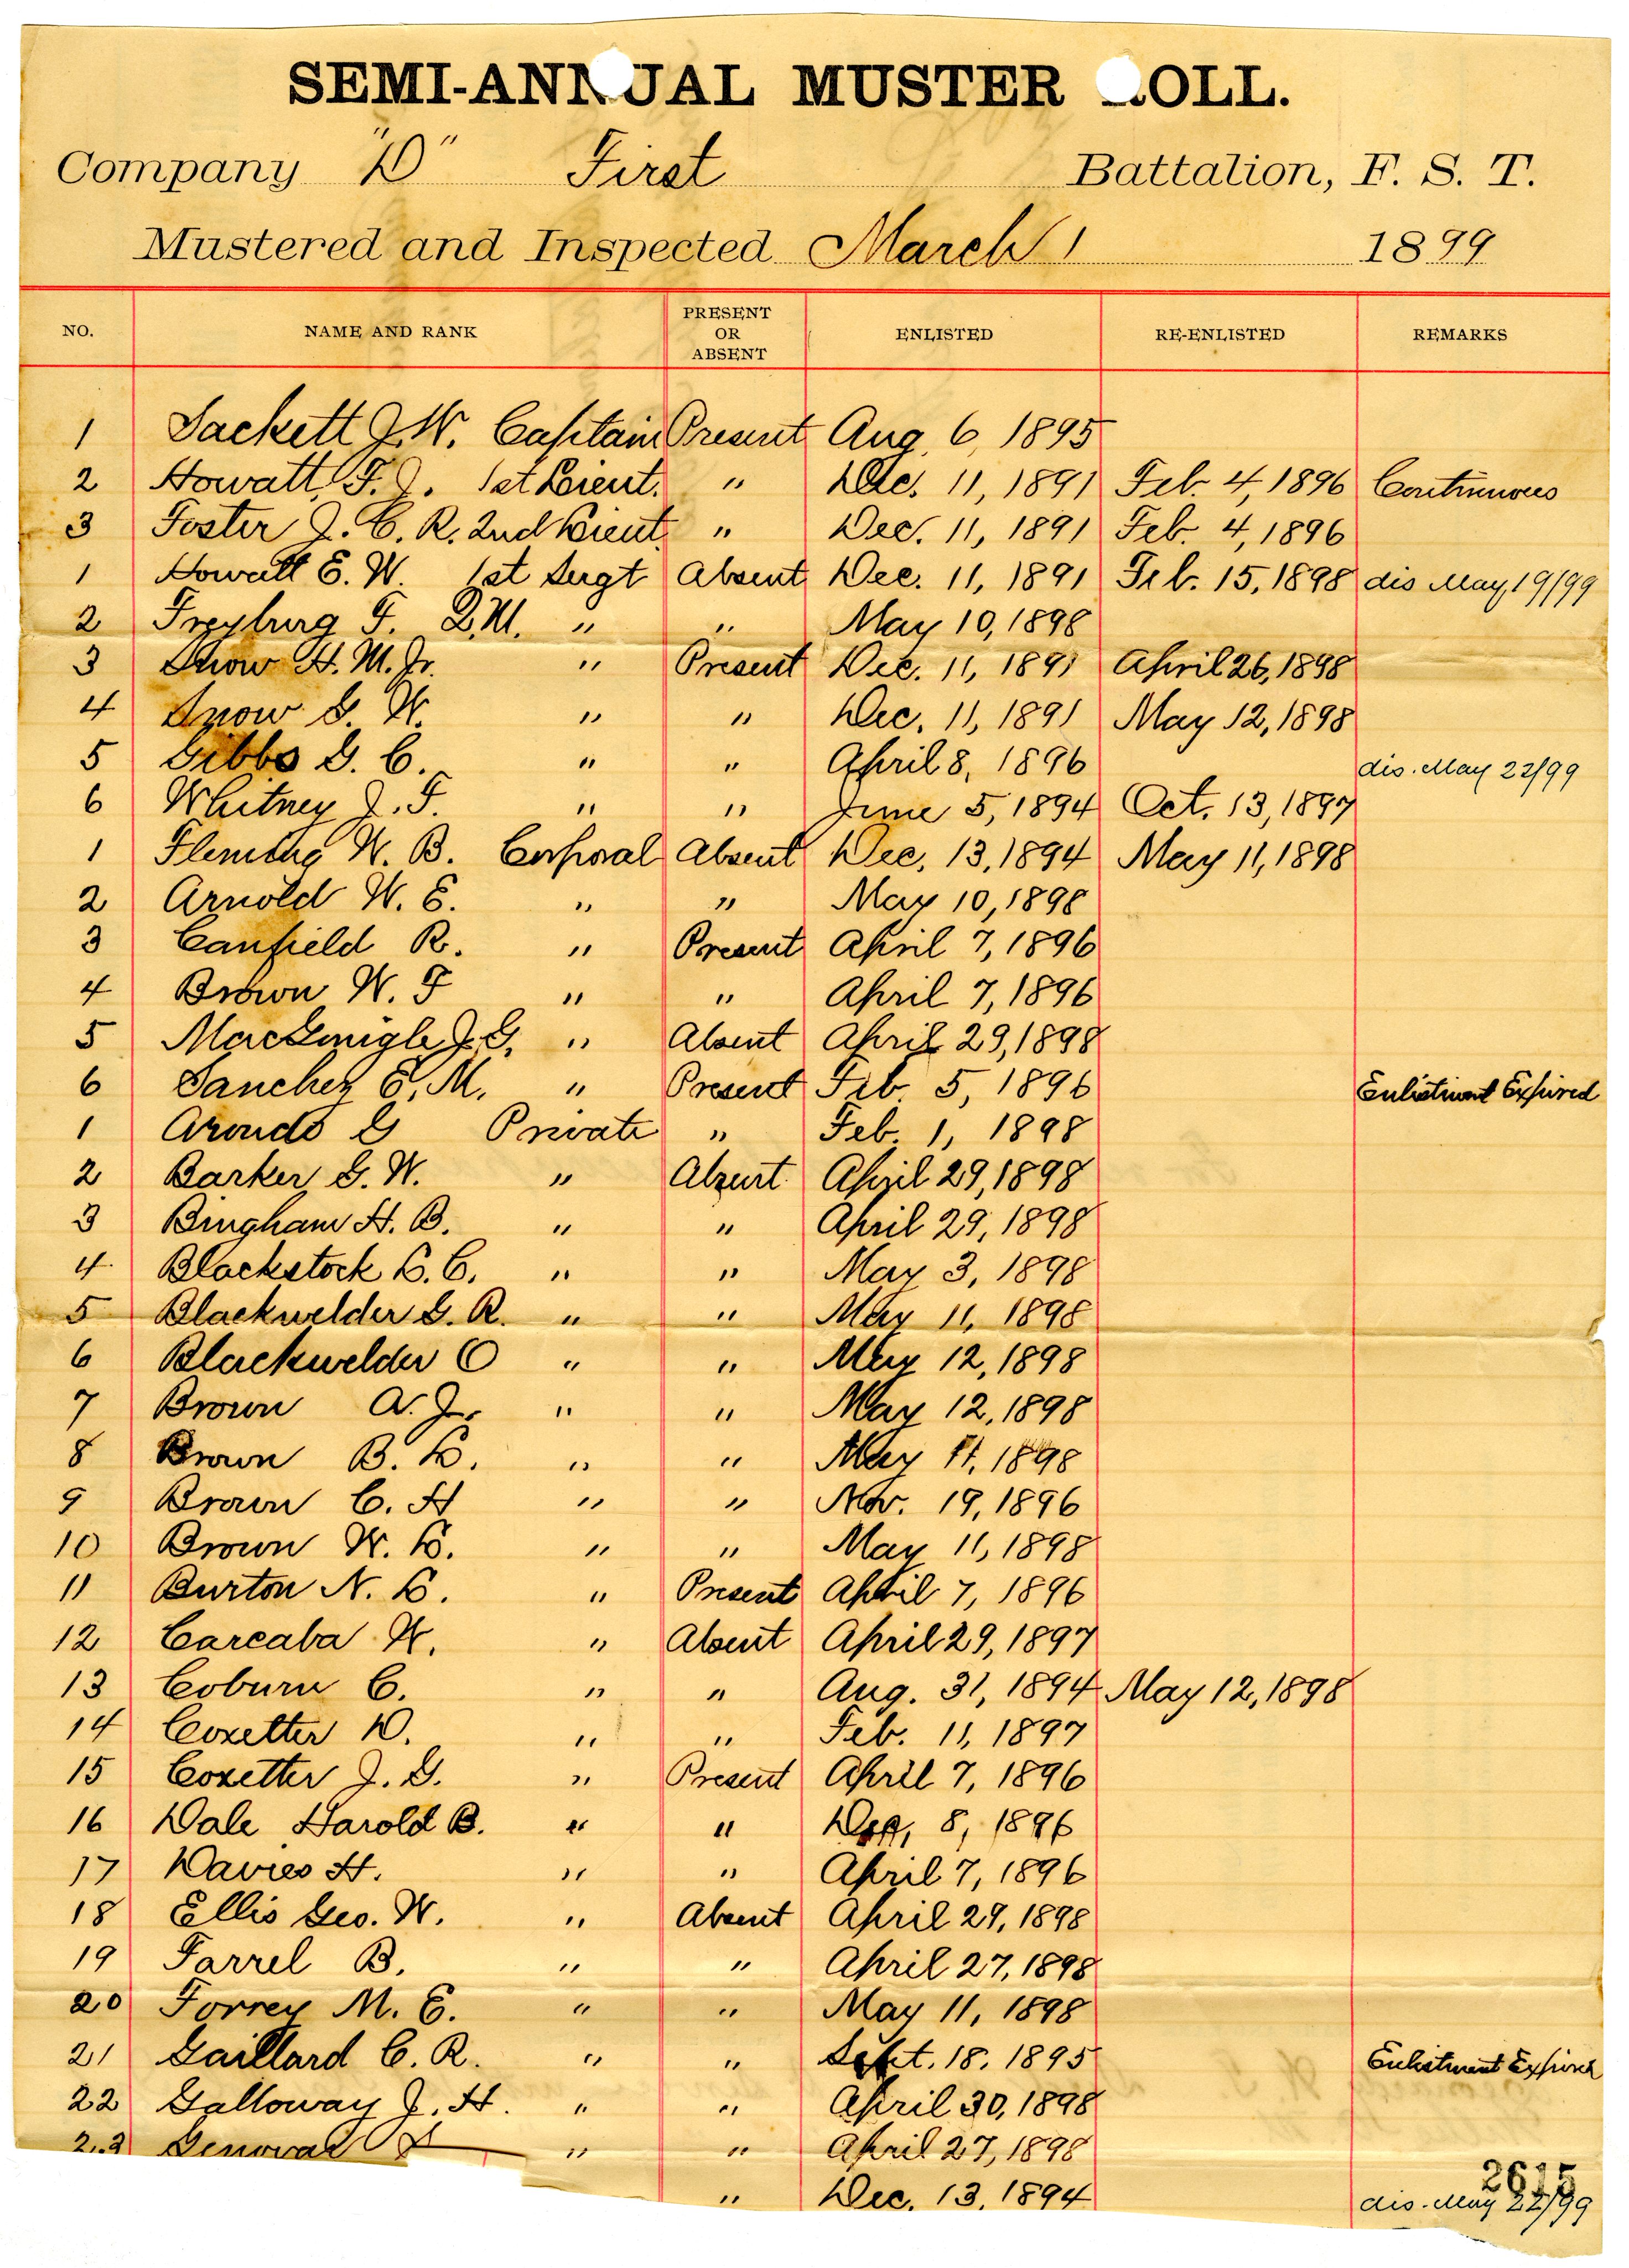 SEMI-ANNUAL MUSTER ROLL.
Company "D" First Battalion, F. S. T.
Mustered and Inspected March 1 1899
NO. NAME AND RANK PRESENT OR ABSENT ENLISTED RE-ENLISTED REMARKS
1 Sackett J. W. Captain Present Aug. 6, 1895
2 Howatt, F. J. 1st Lieut. " Dec. 11, 1891 Feb. 4, 1896 Continuous
3 Foster J. C. R. 2nd Lieut. " Dec. 11, 1891 Feb. 4, 1896
1 Howatt E. W. 1st Sergt Absent Dec. 11, 1891 Feb. 15, 1898 dis May 19/99
2 Freyburg F. Q.M. " " May 10, 1898
3 Snow H. M. Jr. " Present Dec. 11, 1891 April 26, 1898
4 Snow G. W. " " Dec. 11, 1891 May 12, 1898
5 Gibbs G. C. " " April 8, 1896 dis. May 22/99
6 Whitney J. F. " " June 5, 1894 Oct. 13, 1897
1 Fleming W. B. Corporal Absent Dec. 13, 1894 May 11, 1898
2 Arnold W. E. " " May 10, 1898
3 Canfield R. " Present April 7, 1896
4 Brown W. F " " April 7, 1896
5 J. G. " Absent April 29, 1898
6 Sanchez E. M. " Present Feb. 5, 1896 Enlistment Expired
1 G Private " Feb. 1, 1898
2 Barker G. W. " Absent April 29, 1898
3 Bingham H. B. " " April 29, 1898
4 Blackstock L. C. " " May 3, 1898
5 Blackwelder G. R. " " May 11, 1898
6 Blackwelder O " " May 12, 1898
7 Brown A. J. " " May 12, 1898
8 Brown B. L. " " May 11, 1898
9 Brown C. H " " Nov. 19, 1896
10 Brown W. L. " " May 11, 1898
11 Burton N. L. " Present April 7, 1896
12 Carcaba W. " Absent April 29, 1897
13 Coburn C. " " Aug. 31, 1894 May 12, 1898
14 Coxetter D. " " Feb. 11, 1897
15 Coxetter J. G. " Present April 7, 1896
16 Dale Harold B. " " 8, 1896
17 Davies H. " " April 7, 1896
18 Ellis Geo. W. " Absent April 29, 1898
19 Farrel B. " " April 27, 1898
20 Forrey M. E. " " May 11, 1898
21 Gaillard C. R. " " Sept. 18, 1895 Enlistment Expired
22 Galloway J. H. " " April 30, 1898
23 Genovar " " April 27, 1898
" Dec. 13, 1894 dis. May 22/99
2615